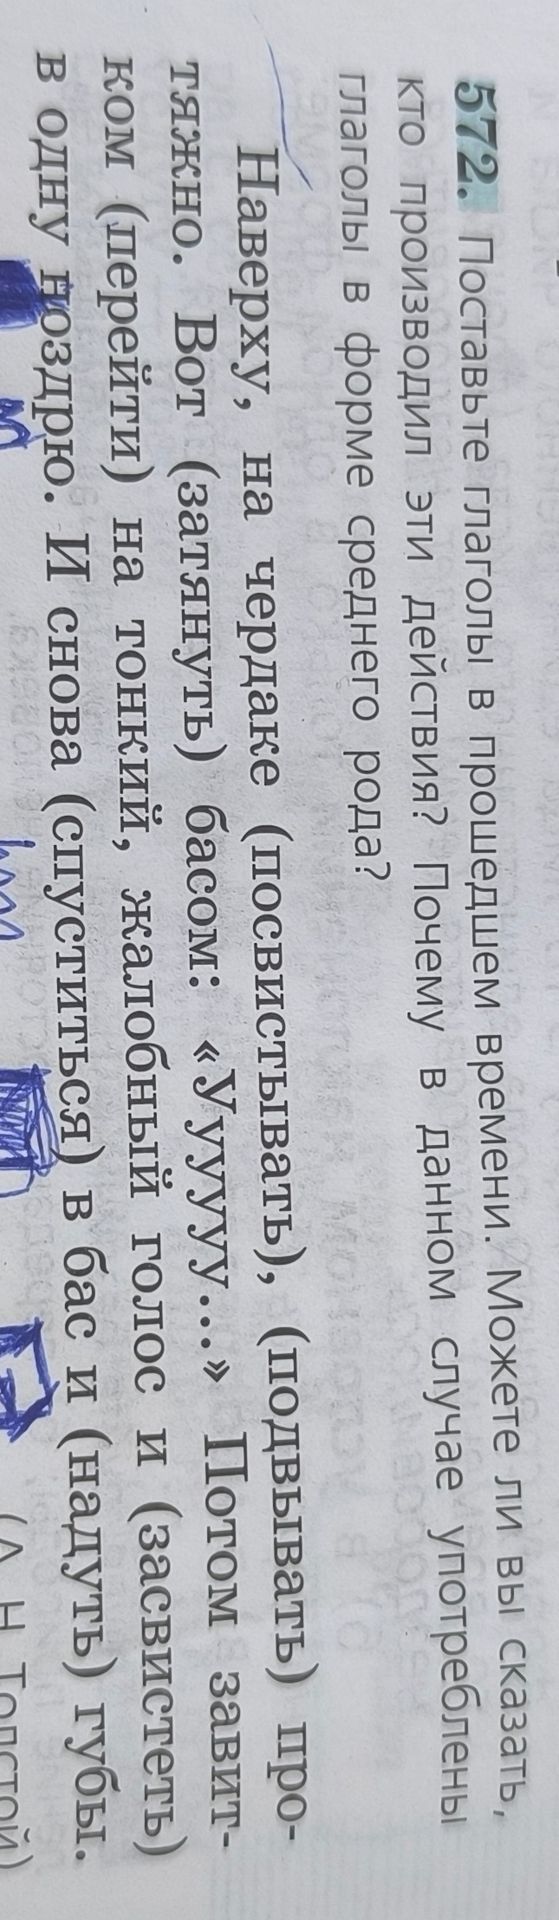 572. Поставьте глаголы в прошедшем времени. Можете ли вы сказать,
кто производил эти действия? Почему в данном случае употреблены
глаголы в форме среднего рода?
Наверху, на чердаке (посвистывать), (подвывать) про-
тяжно. Вот (затянуть) басом: «Ууууу...» Потом завит-
ком (перейти) на тонкий, жалобный голос и (засвистеть)
в одну ноздрю. И снова (спуститься) в бас и (надуть) губы.
(А. Н. Толстой)